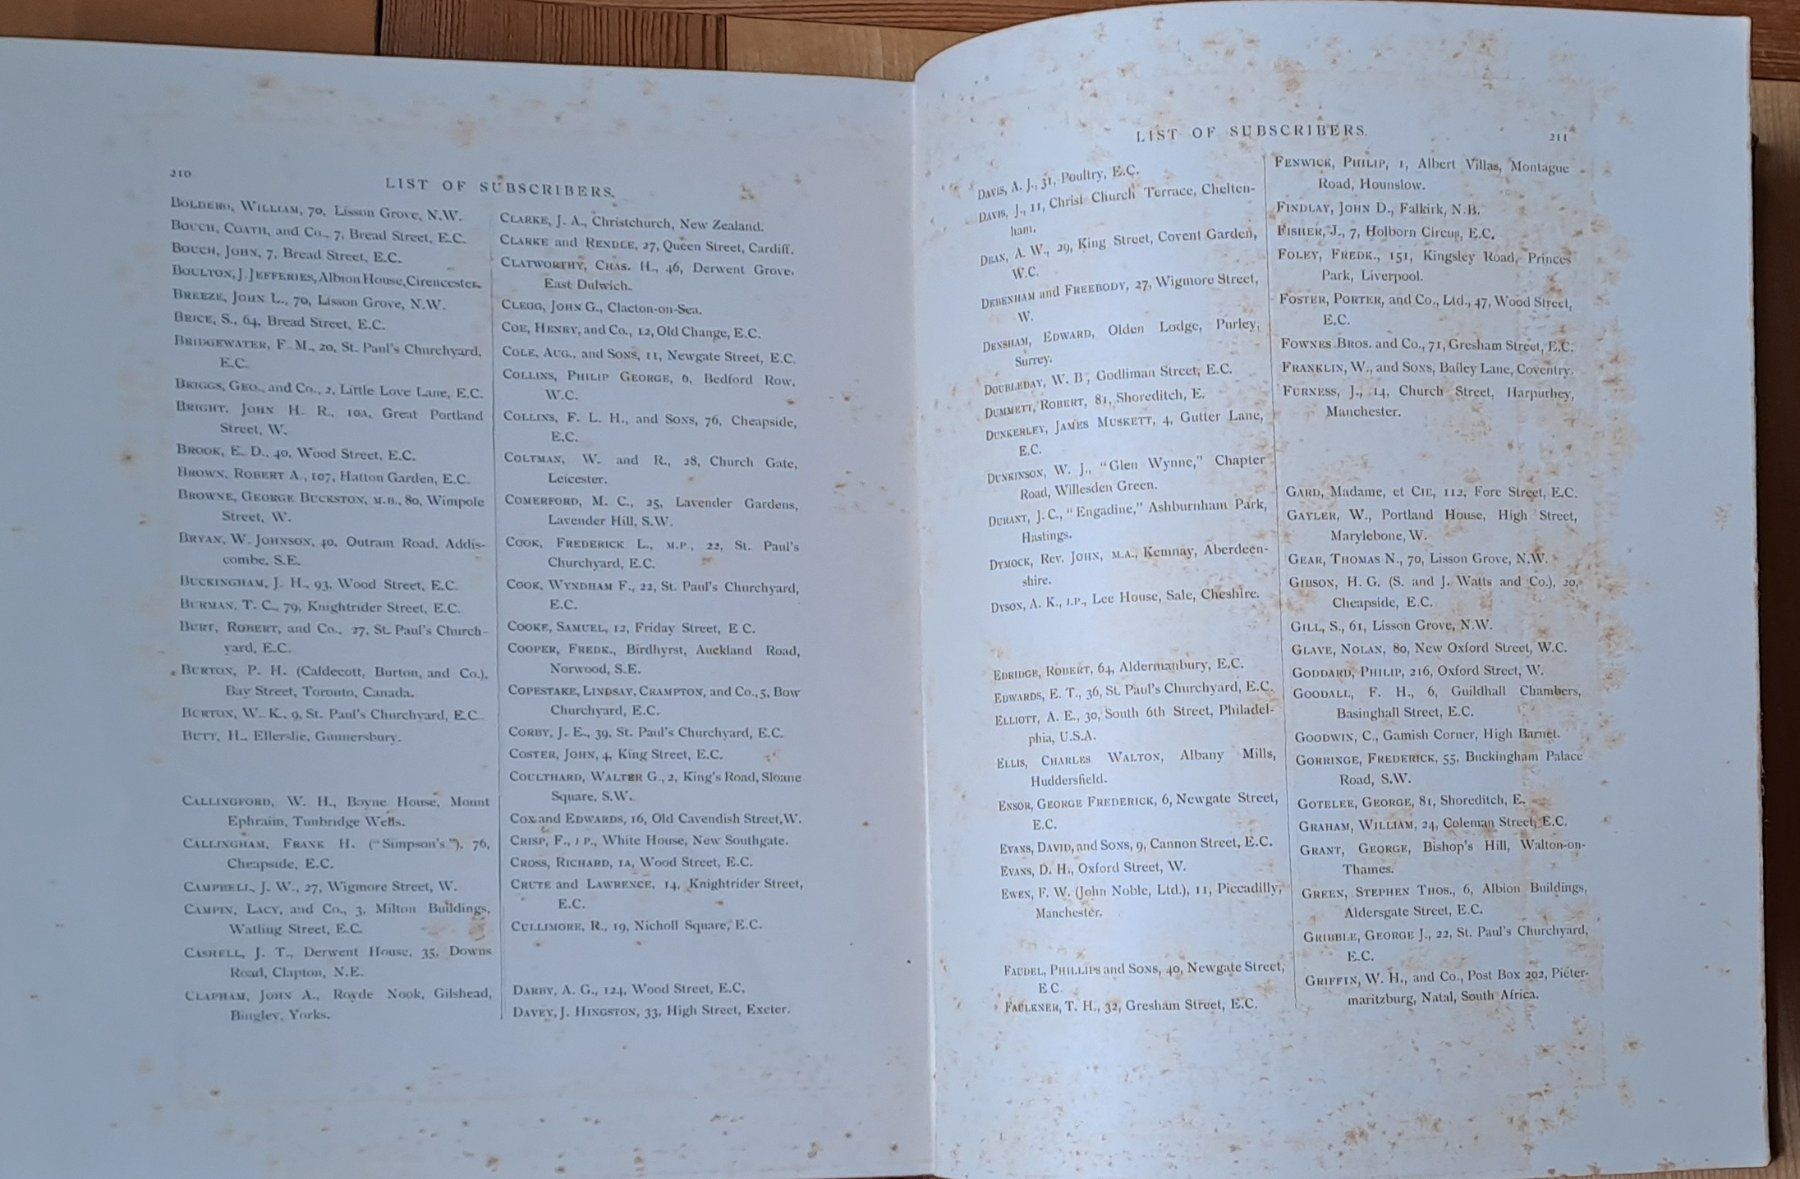 210
LIST OF SUBSCRIBERS.
BOLDERO, WILLIAM, 70, Lisson Grove, N.W.
BOUCH, COATH, and Co., 7, Bread Street, E.C.
BOUCH, JOHN, 7, Bread Street, E.C.
BOULTON, J. JEFFERIES, Albion House, Cirencester.
BREEZE, JOHN L., 70, Lisson Grove, N.W.
BRICE, S., 64, Bread Street, E.C.
BRIDGEWATER, F. M., 20, St. Paul's Churchyard,
E.C.
BRIGGS, GEO., and Co., 2, Little Love Lane, E.C.
BRIGHT, JOHN H. R., 10A, Great Portland
Street, W.
BROOK, E. D., 40, Wood Street, E.C.
BROWN, ROBERT A., 107, Hatton Garden, E.C.
BROWNE, GEORGE BUCKSTON, M.B., 80, Wimpole
Street, W.
BRYAN, W. JOHNSON, 40, Outram Road, Addis-
combe, S.E.
BUCKINGHAM, J. H., 93, Wood Street, E.C.
BURMAN, T. C., 79, Knightrider Street, E.C.
BURT, ROBERT, and Co., 27, St. Paul's Church-
yard, E.C.
BURTON, P. H. (Caldecott, Burton, and Co.),
Bay Street, Toronto, Canada.
BURTON, W. K., 9, St. Paul's Churchyard, E.C.
BUTT, H., Ellerslie, Gunnersbury.
CALLINGFORD, W. H., Boyne House, Mount
Ephraim, Tunbridge Wells.
CALLINGHAM, FRANK H. ("Simpson's"), 76,
Cheapside, E.C.
CAMPBELL, J. W., 27, Wigmore Street, W.
CAMPIN, LACY, and Co., 3, Milton Buildings,
Watling Street, E.C.
CASHELL, J. T., Derwent House, 35, Downs
Road, Clapton, N.E.
CLAPHAM, JOHN A., Royde Nook, Gilshead,
Bingley, Yorks.
CLARKE, J. A., Christchurch, New Zealand.
CLARKE and RENDLE, 27, Queen Street, Cardiff.
CLATWORTHY, CHAS. H., 46, Derwent Grove,
East Dulwich.
CLEGG, JOHN G., Clacton-on-Sea.
COE, HENRY, and Co., 12, Old Change, E.C.
COLE, AUG., and SONS, 11, Newgate Street, E.C.
COLLINS, PHILIP GEORGE, 6, Bedford Row,
W.C.
COLLINS, F. L. H., and SONS, 76, Cheapside,
E.C.
COLTMAN, W. and R., 28, Church Gate,
Leicester.
COMERFORD, M. C., 25, Lavender Gardens,
Lavender Hill, S.W.
COOK, FREDERICK L., M.P., 22, St. Paul's
Churchyard, E.C.
COOK, WYNDHAM F., 22, St. Paul's Churchyard,
E.C.
COOKE, SAMUEL, 12, Friday Street, E C.
COOPER, FREDK., Birdhyrst, Auckland Road,
Norwood, S.E.
COPESTAKE, LINDSAY, CRAMPTON, and Co., 5, Bow
Churchyard, E.C.
CORBY, J. E., 39, St. Paul's Churchyard, E.C.
COSTER, JOHN, 4, King Street, E.C.
COULTHARD, WALTER G., 2, King's Road, Sloane
Square, S.W.
COX and EDWARDS, 16, Old Cavendish Street, W.
CRISP, F., J P., White House, New Southgate.
CROSS, RICHARD, 1A, Wood Street, E.C.
CRUTE and LAWRENCE, 14, Knightrider Street,
E.C.
CULLIMORE, R., 19, Nicholl Square, E.C.
DARBY, A. G., 124, Wood Street, E.C.
DAVEY, J. HINGSTON, 33, High Street, Exeter.
LIST OF SUBSCRIBERS.
211
DAVIS, A. J., 31, Poultry, E.C.
DAVIS, J., 11, Christ Church Terrace, Chelten-
ham.
DEAN, A. W., 29, King Street, Covent Garden,
W.C.
DEBENHAM and FREEBODY, 27, Wigmore Street,
W.
DENSHAM, EDWARD, Olden Lodge, Purley,
Surrey.
DOUBLEDAY, W. B., Godliman Street, E.C.
DUMMETT, ROBERT, 81, Shoreditch, E.
DUNKERLEY, JAMES MUSKETT, 4, Gutter Lane,
E.C.
DUNKINSON, W. J., "Glen Wynne," Chapter
Road, Willesden Green.
DURANT, J. C., "Engadine," Ashburnham Park,
Hastings.
DYMOCK, Rev. JOHN, M.A., Kemnay, Aberdeen-
shire.
DYSON, A. K., J.P., Lee House, Sale, Cheshire.
EDRIDGE, ROBERT, 64, Aldermanbury, E.C.
EDWARDS, E. T., 36, St. Paul's Churchyard, E.C.
ELLIOTT, A. E., 30, South 6th Street, Philadel-
phia, U.S.A.
ELLIS, CHARLES WALTON, Albany Mills,
Huddersfield.
ENSOR, GEORGE FREDERICK, 6, Newgate Street,
E.C.
EVANS, DAVID, and SONS, 9, Cannon Street, E.C.
EVANS, D. H., Oxford Street, W.
EWEN, F. W. (John Noble, Ltd.), 11, Piccadilly,
Manchester.
FAUDEL, PHILLIPS and SONS, 40, Newgate Street,
E C.
FAULKNER, T. H., 32, Gresham Street, E.C.
FENWICK, PHILIP, 1, Albert Villas, Montague
Road, Hounslow.
FINDLAY, JOHN D., Falkirk, N.B.
FISHER, J., 7, Holborn Circus, E.C.
FOLEY, FREDK., 151, Kingsley Road, Princes
Park, Liverpool.
FOSTER, PORTER, and Co., Ltd., 47, Wood Street,
E.C.
FOWNES BROS. and Co., 71, Gresham Street, E.C.
FRANKLIN, W., and SONS, Bailey Lane, Coventry.
FURNESS, J., 14, Church Street, Harpurhey,
Manchester.
GARD, Madame, et CIE, 112, Fore Street, E.C.
GAYLER, W., Portland House, High Street,
Marylebone, W.
GEAR, THOMAS N., 70, Lisson Grove, N.W.
GIBSON, H. G. (S. and J. Watts and Co.), 20,
Cheapside, E.C.
GILL, S., 61, Lisson Grove, N.W.
GLAVE, NOLAN, 80, New Oxford Street, W.C.
GODDARD, PHILIP, 216, Oxford Street, W.
GOODALL, F. H., 6, Guildhall Chambers,
Basinghall Street, E.C.
GOODWIN, C., Gamish Corner, High Barnet.
GORRINGE, FREDERICK, 55, Buckingham Palace
Road, S.W.
GOTELEE, GEORGE, 81, Shoreditch, E.
GRAHAM, WILLIAM, 24, Coleman Street, E.C.
GRANT, GEORGE, Bishop's Hill, Walton-on-
Thames.
GREEN, STEPHEN THOS., 6, Albion Buildings,
Aldersgate Street, E.C.
GRIBBLE, GEORGE J., 22, St. Paul's Churchyard,
E.C.
GRIFFIN, W. H., and Co., Post Box 202, Pieter-
maritzburg, Natal, South Africa.